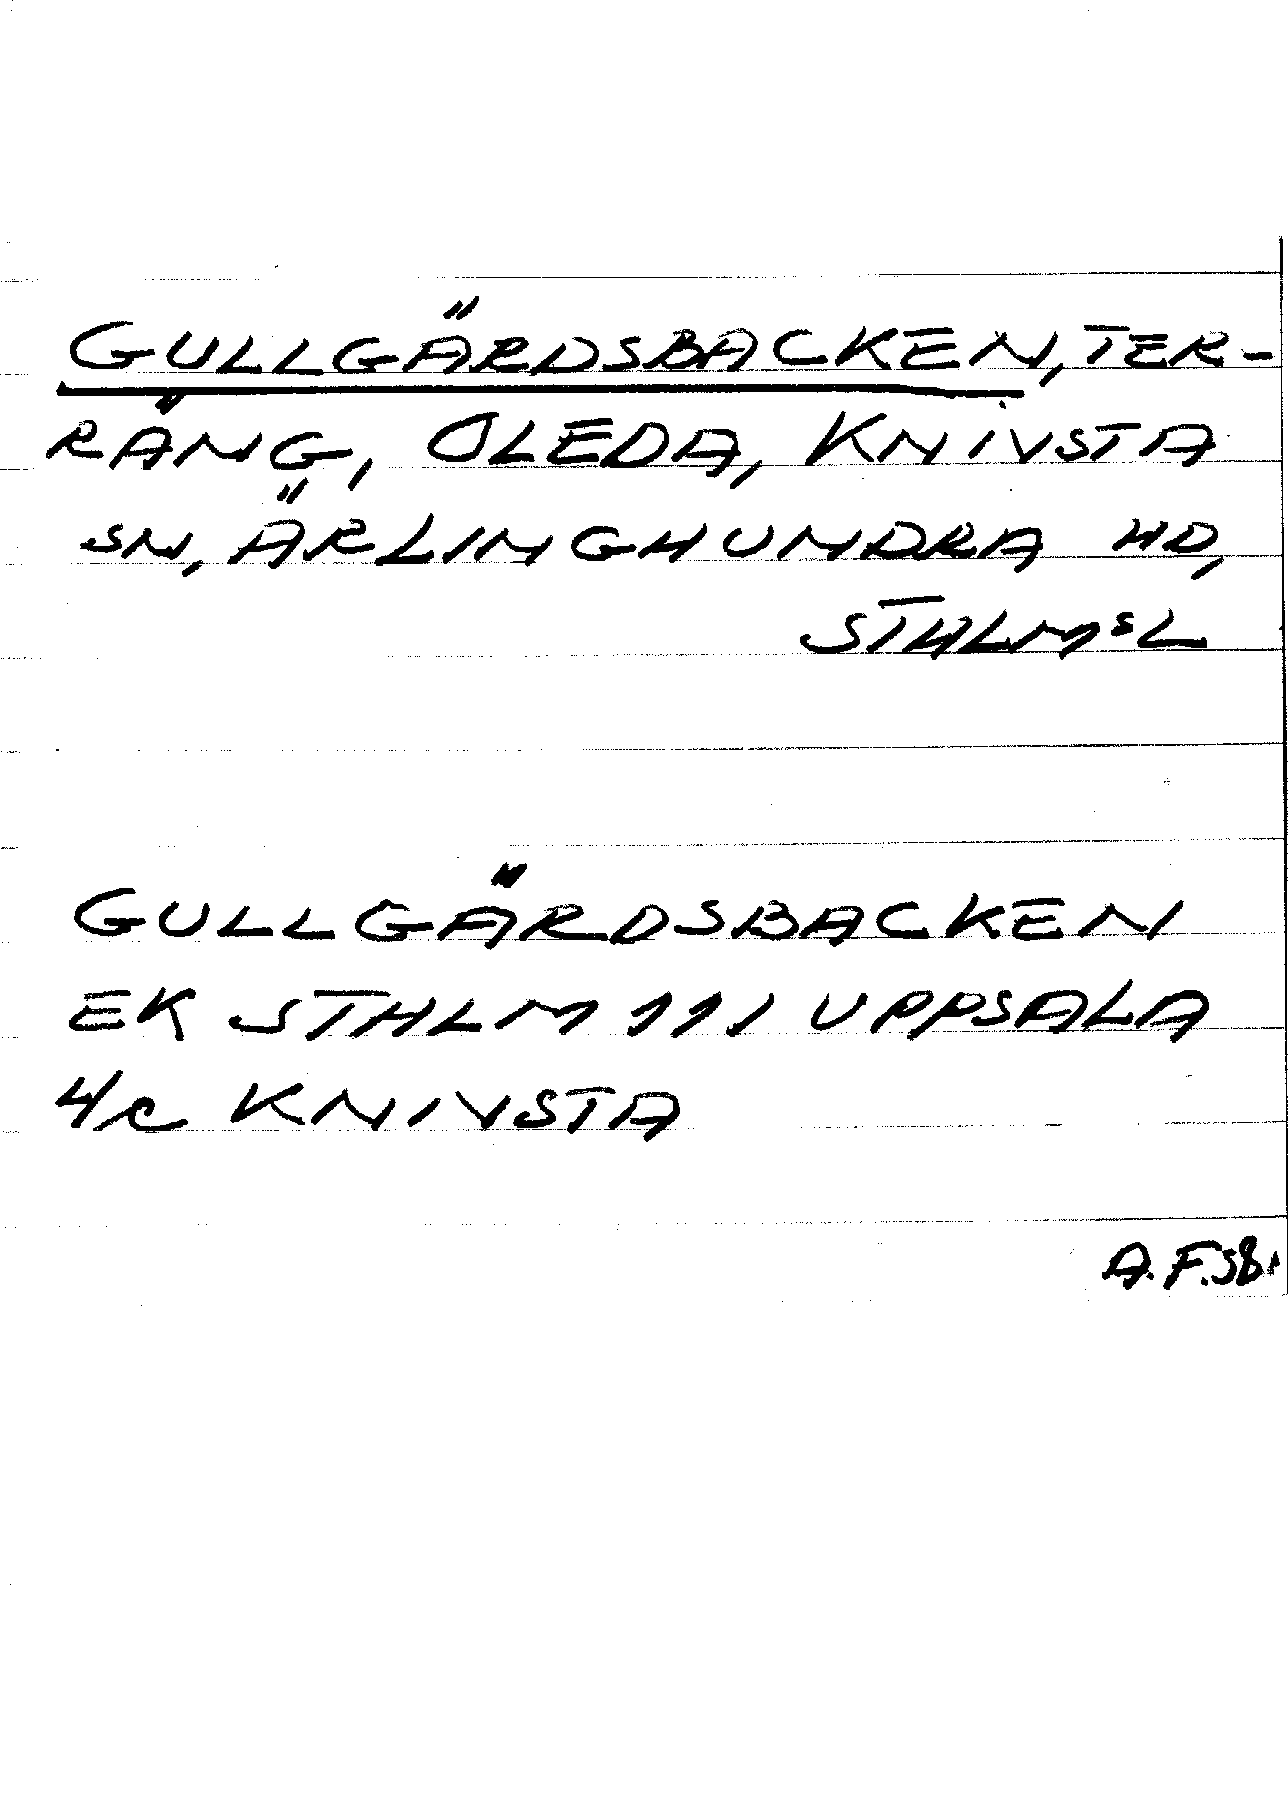 GULLGÄRDSBACKEN, TER-
RÄNG, OLEDA, KNIVSTA
SN, ÄRLINGHUNDRA HD,
STHLMSL
GULLGÄRDSBACKEN
EK STHLM 111 UPPSALA
4/c KNIVSTA
A.F.58.